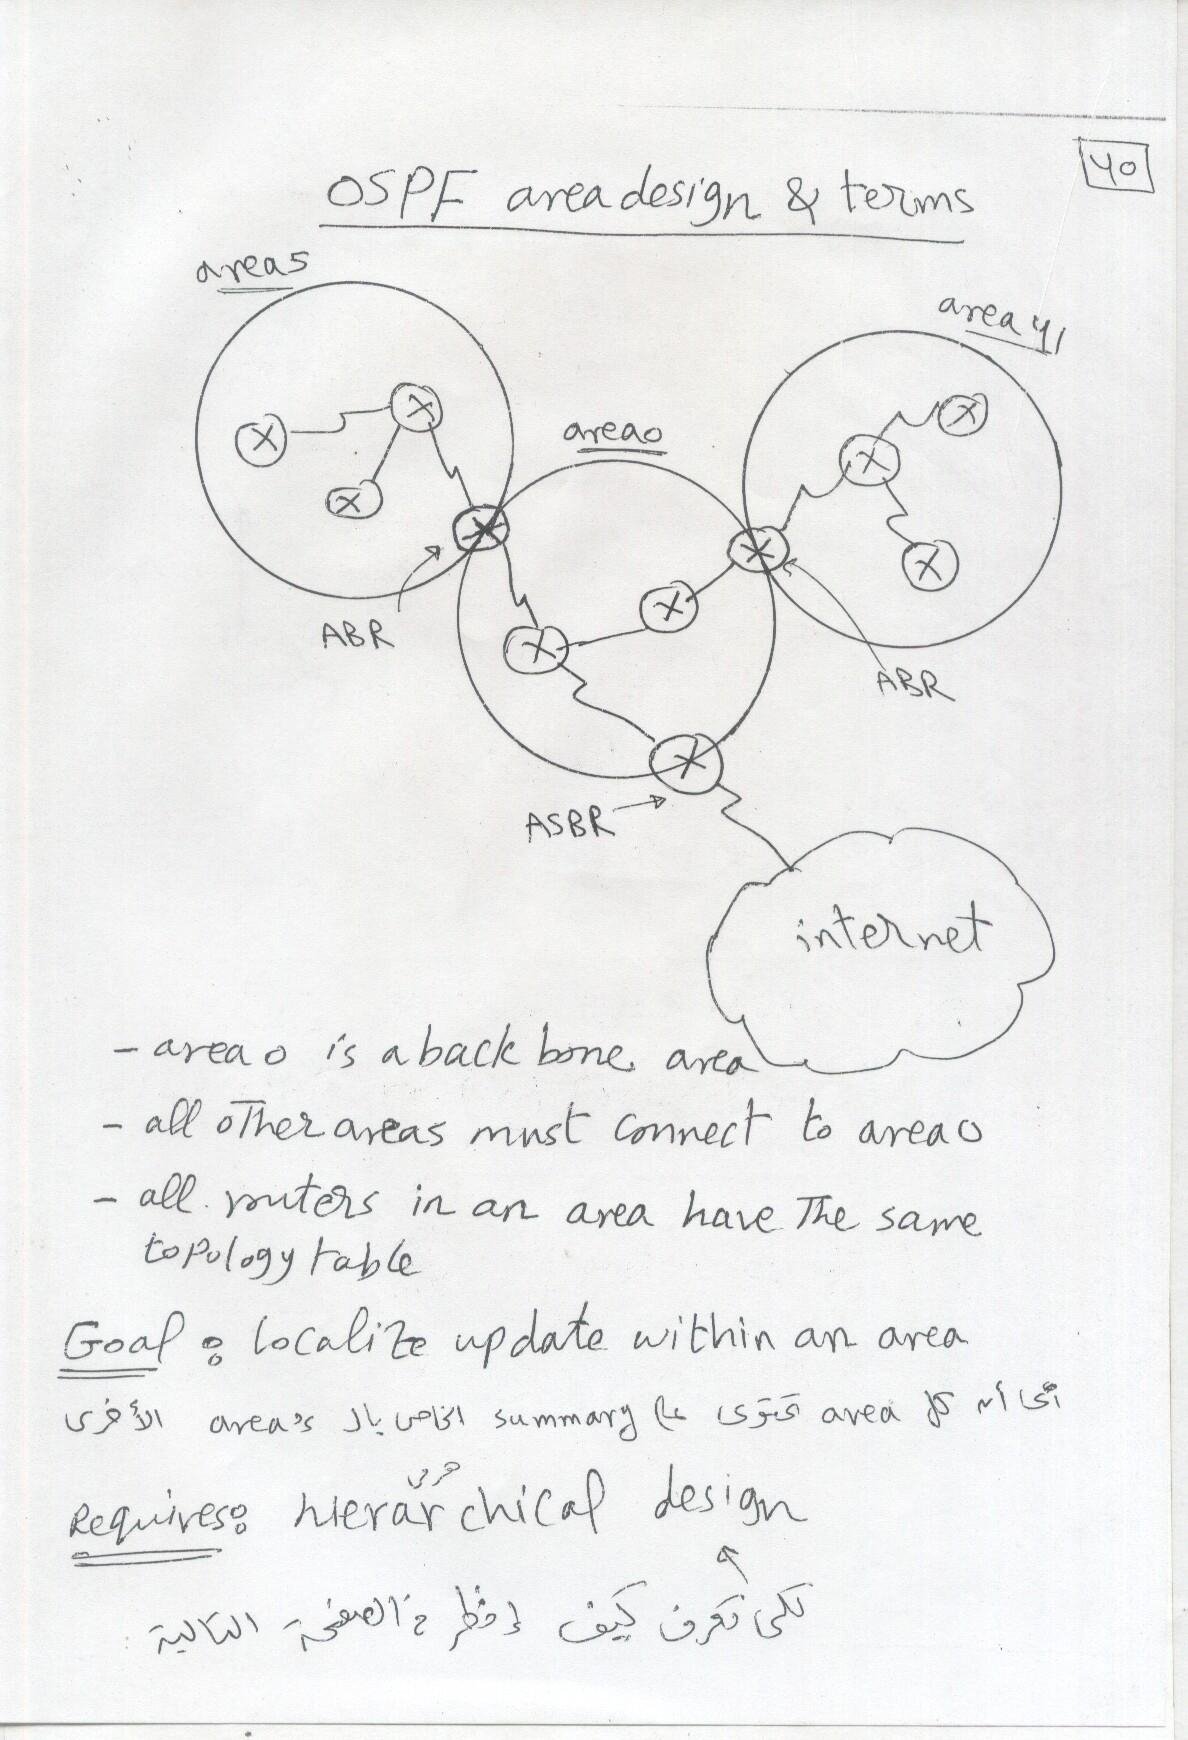 40
OSPF area design & terms
area5
area 41
area0
ABR
ABR
ASBR
internet
- area0 is a back bone area
- all other areas must connect to area0
- all routers in an area have the same
topology table
Goal: localize update within an area
أى أن كل area تحتوى على summary الخاص بالـ area's الأخرى
هرمى
Requires: hierarchical design
لكى تعرف كيف إنظر فى الصفحة التالية